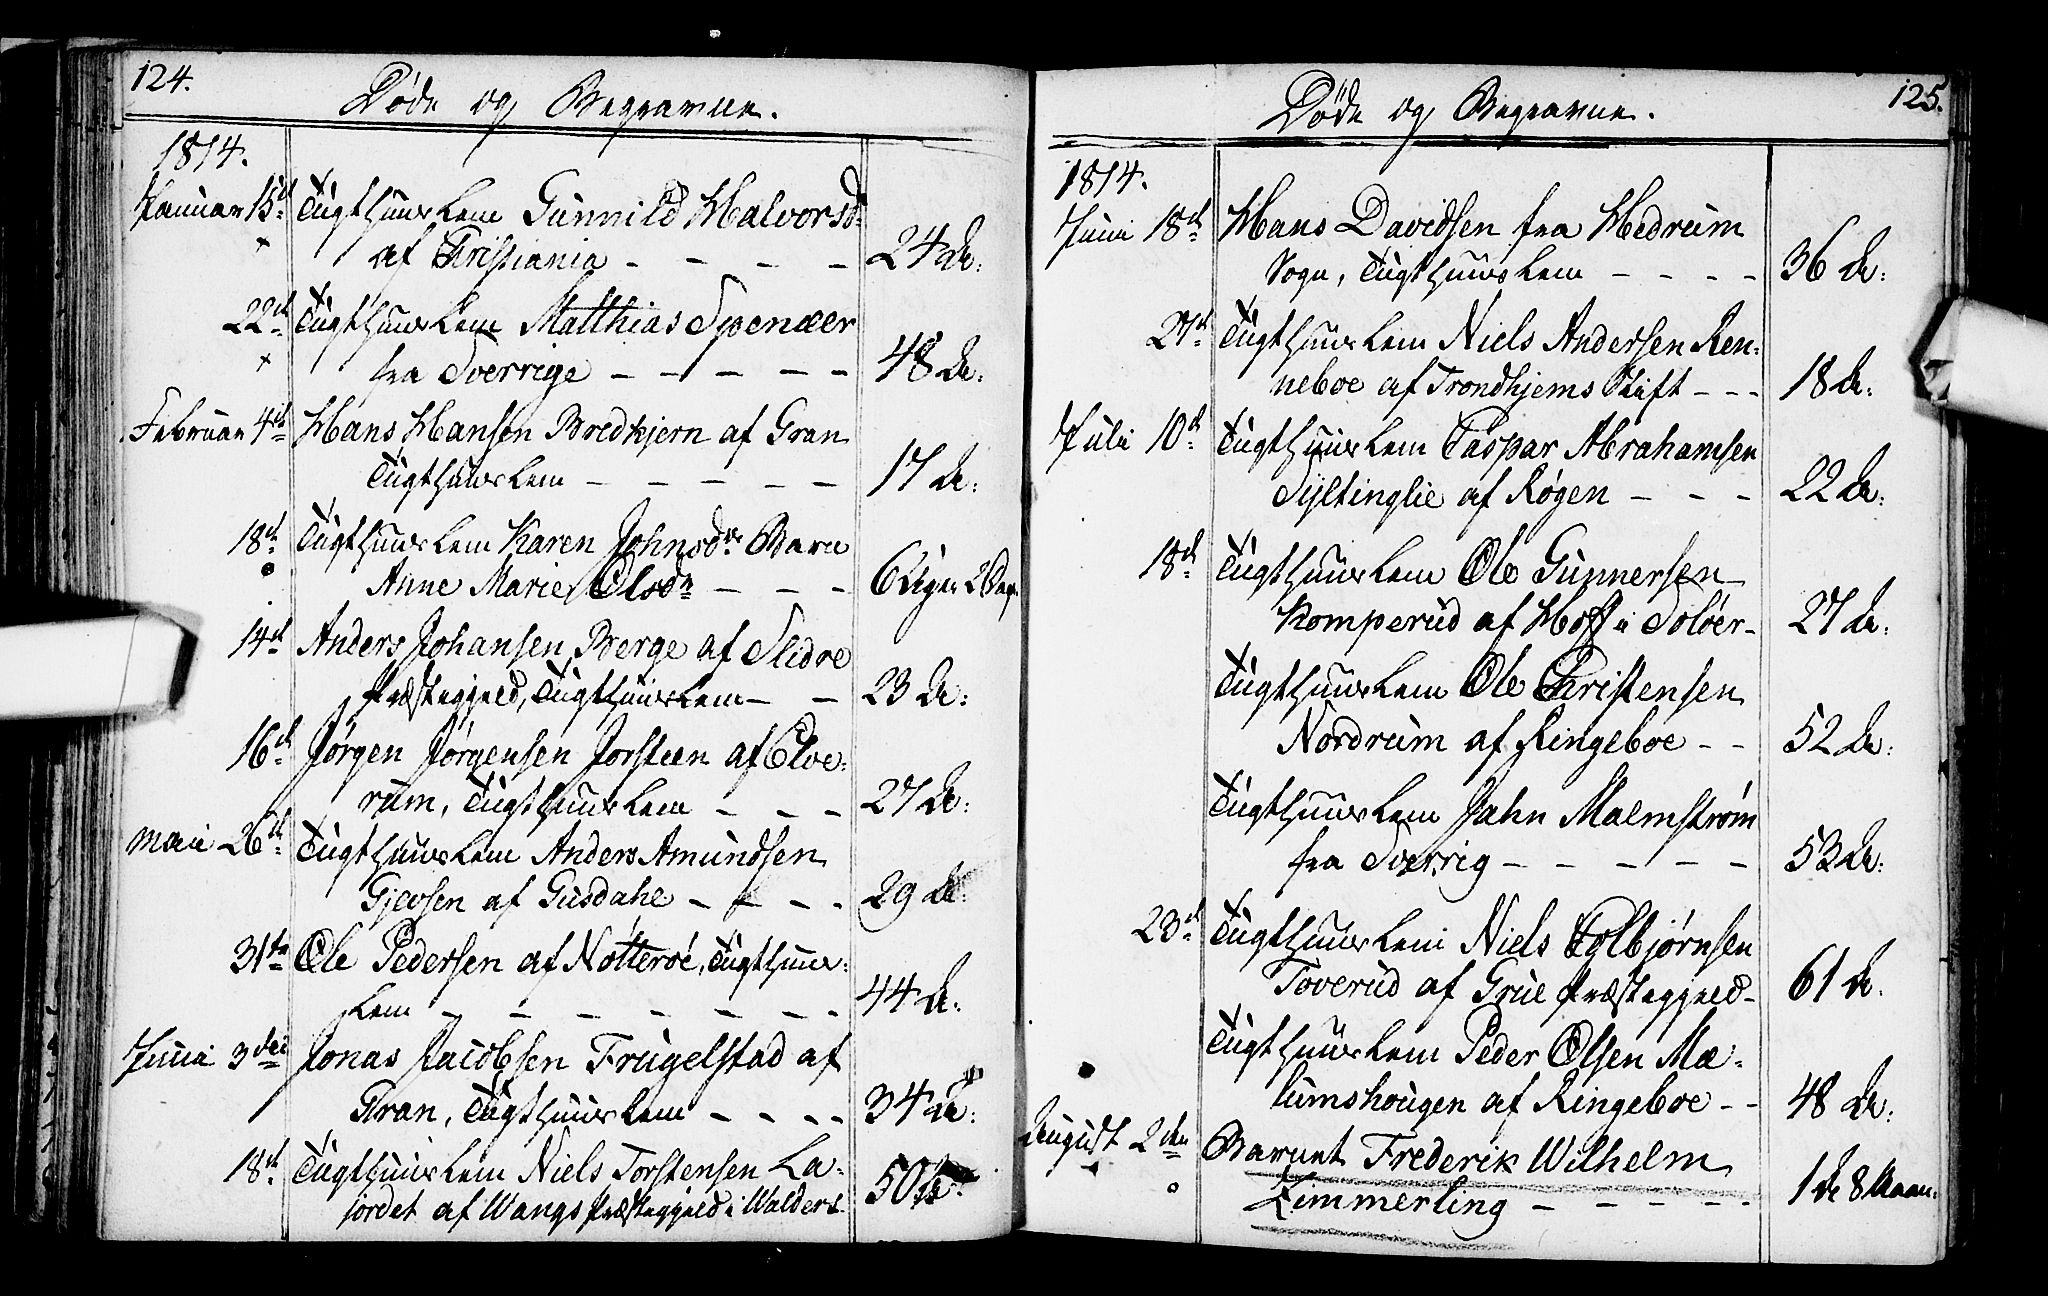 124.
Døde og Begravne.
1814.
Januar 15d. Tugthuus Lem Gunnild Halvorsd.
af Christiania - - - - 24 Ar.
22d. Tugthuus Lem Matthias Spenær
fra Sverrige - - - - - 48 Ar.
Februar 4d. Hans Hansen Bredkjern af Gran
Tugthuus Lem - - - - - 17 Ar.
18d. Tugthuus Lem Karen Johnsdr Barn
Anne Marie Olsdr - - - 6 Uger 2 Dage
14d. Anders Johansen Berge af Slidre
Præstegjeld, Tugthuus Lem - - 23 Ar.
16d. Jørgen Jørgensen Jorsteen af Elve-
rum, Tugthuus Lem - - - 27 Ar.
Maii 26d. Tugthuus Lem Anders Amundsen
Gjevsen af Gusdahl - - - - 29 Ar.
31te Ole Pedersen af Nøtterøe, Tugthuus-
Lem - - - - - - 44 Ar.
Junii 3die Jonas Jacobsen Frugelstad af
Gran, Tugthuus Lem - - - - 34 Ar.
18d. Tugthuus Lem Niels Torstensen La-
jordet af Wangs Præstegjeld i Walders 50 Ar.
125.
Døde og Begravne.
1814.
Junii 18d. Hans Davidsen fra Hedrum
Sogn, Tugthuus Lem - - - - 36 Ar.
27d. Tugthuus Lem Niels Andersen Ren-
neboe af Trondhjems Stift - - - 18 Ar.
Juli 10d. Tugthuus Lem Caspar Abrahamsen
Syltinglie af Røgen - - - 22 Ar.
18d. Tugthuus Lem Ole Gunnersen
Komperud af Hoff i Soløer - 27 Ar.
Tugthuus Lem Ole Christensen
Nordrum af Ringeboe - - 52 Ar.
Tugthuus Lem Jahn Malmstrøm
fra Sverrig - - - - - 53 Ar.
23d. Tugthuus Lem Niels Colbjørnsen
Toverud af Grue Præstegjeld - 61 Ar.
Tugthuus Lem Peder Olsen Mæ-
lumshougen af Ringeboe - - 48 Ar.
August 2den Barnet Frederik Wilhelm
Zimmerling - - - - - 1 Ar 8 Maan.